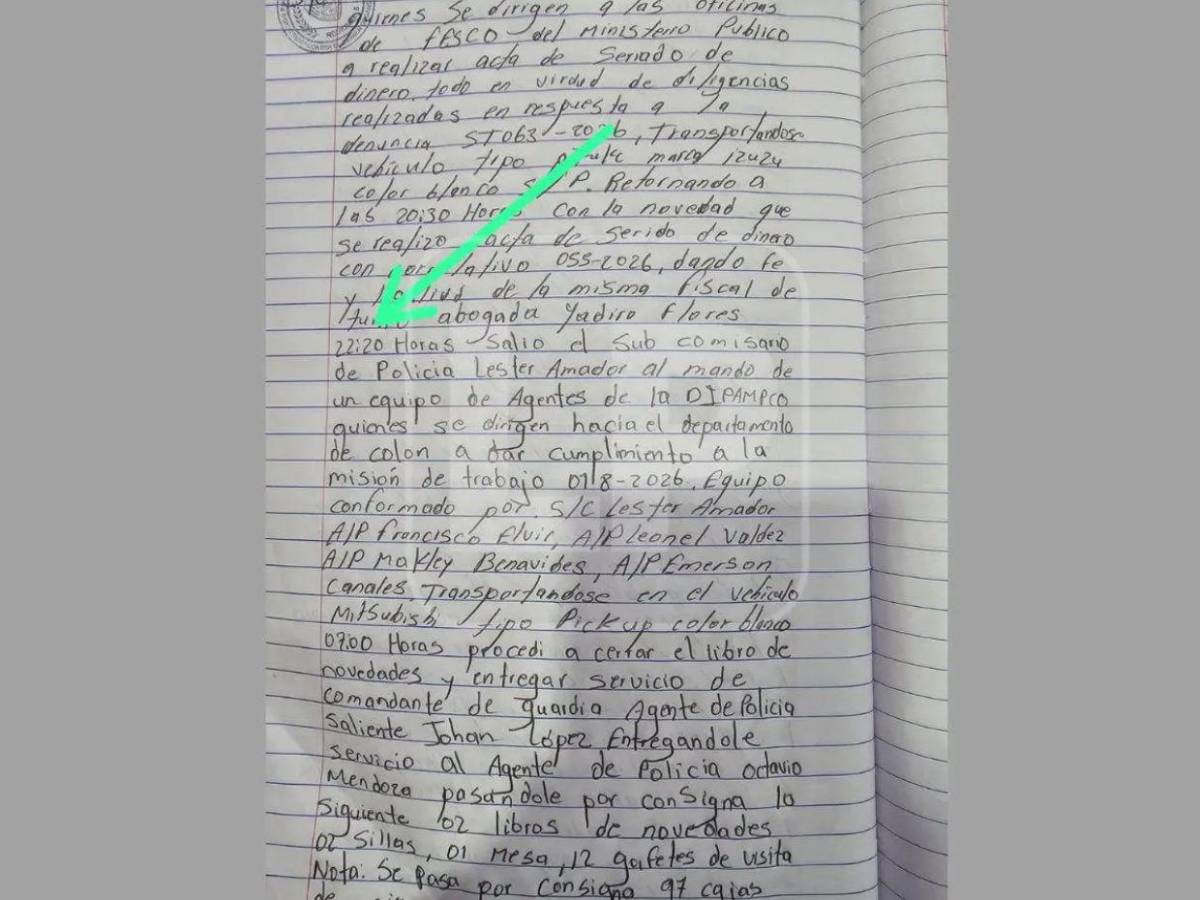 quienes se dirigen a las oficinas
de FESCO del Ministerio Publico
a realizar acta de Seriado de
dinero, todo en virdud de diligencias
realizadas en respuesta a la
denuncia ST063-2026, Transportandose
vehiculo tipo marca izuzu
color blanco S/P. Retornando a
las 20:30 Horas con la novedad que
se realizo acta de Serido de dinero
con 055-2026, dando fe
y de la misma fiscal de
turno abogada Yadira Flores
22:20 Horas Salio el Sub comisario
de Policia Lester Amador al mando de
un equipo de Agentes de la DIPAMPCO
quienes se dirigen hacia el departamento
de colon a dar cumplimiento a la
misión de trabajo 018-2026, Equipo
conformado por. S/C Lester Amador
A/P francisco Elvir, A/P leonel Valdez
A/P Makley Benavides, A/P Emerson
Canales, Transportandose en el vehiculo
Mitsubishi tipo Pick up color blanco
07:00 Horas procedi a cerrar el libro de
novedades y entregar servicio de
comandante de guardia Agente de Policia
saliente Johan López Entregandole
servicio al Agente de Policia octavio
Mendoza pasandole por consigna lo
siguiente 02 libros de novedades
02 Sillas, 01 Mesa, 12 gafetes de visita
Nota: Se pasa por consigna 97 cajas
de